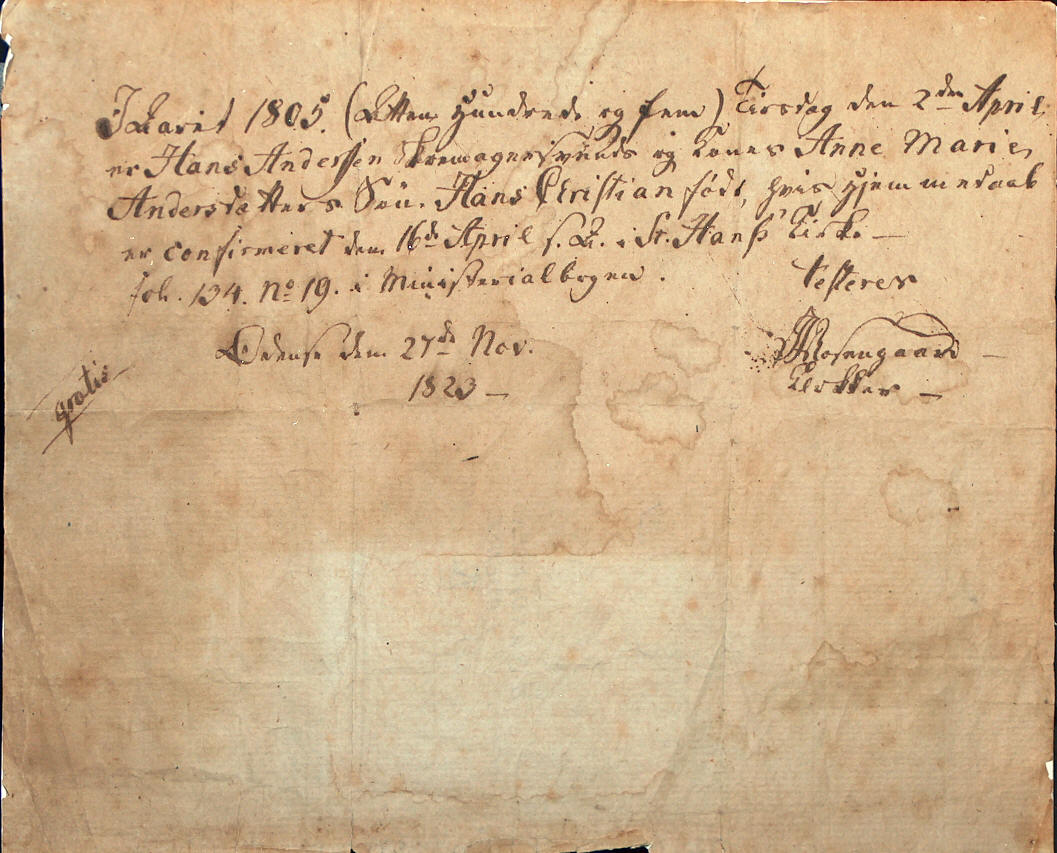 I Aaret 1805. (Atten Hundrede og fem) Tirsdag den 2den April,
er Hans Andersen Skoemagersvends og Kones Anne Marie,
Andersdatters Søn. Hans Christian født, hvis Hjemmedaab
er confirmeret den 16de April s. A. i St. Hans' Kirke. —
fol. 134. No 19. i Ministerialbogen.
testerer
Odense den 27de Nov.
1823 —
Rosengaard —
Klokker —
gratis